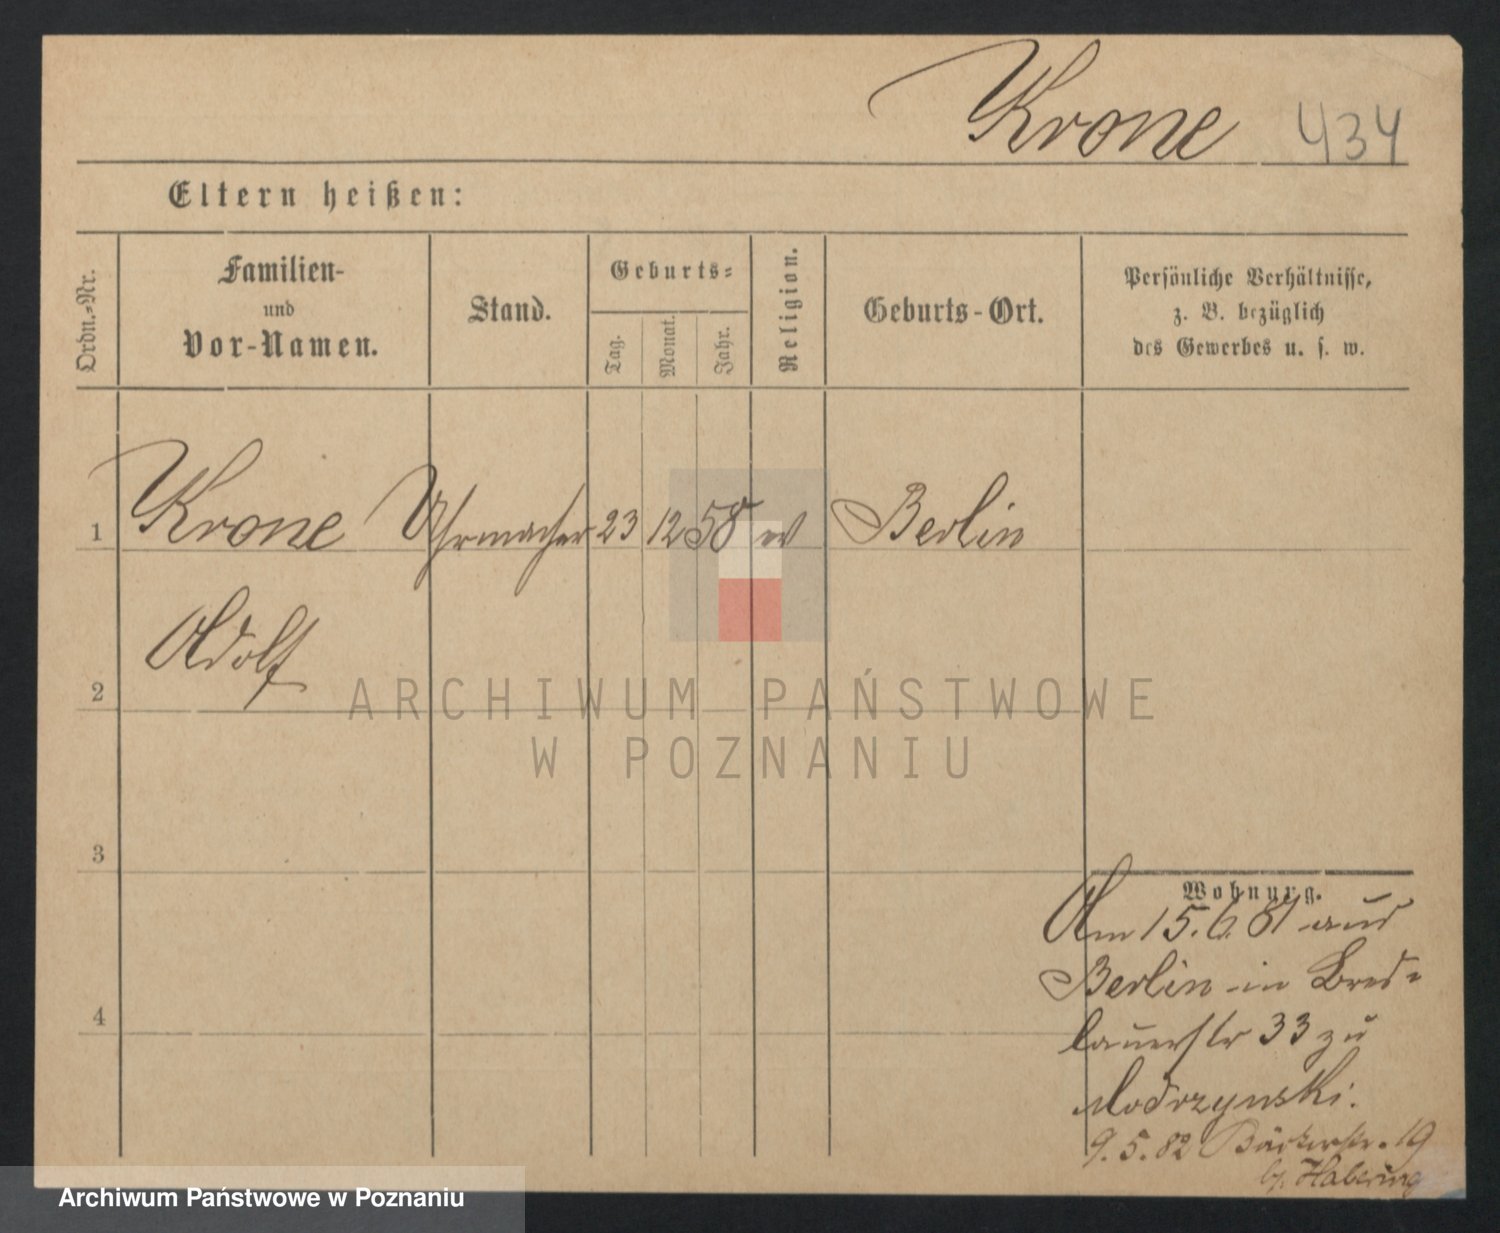 Krone 434
Eltern heißen:
Ordn.-Nr.
Familien-
und
Vor-Namen.
Stand.
Geburts-
Tag.
Monat.
Jahr.
Religion.
Geburts-Ort.
Persönliche Verhältnisse,
z. B. bezüglich
des Gewerbes u. s. w.
1 Krone Uhrmacher 23 12 58 ev Berlin
Adolf
2
ARCHIWUM PAŃSTWOWE
W POZNANIU
3
Wohnung.
Am 15.6.81 aus
Berlin in Bres-
4
lauerstr 33 zu
Modrzynski.
9.5.82 Bäckerstr. 19
Archiwum Państwowe w Poznaniu